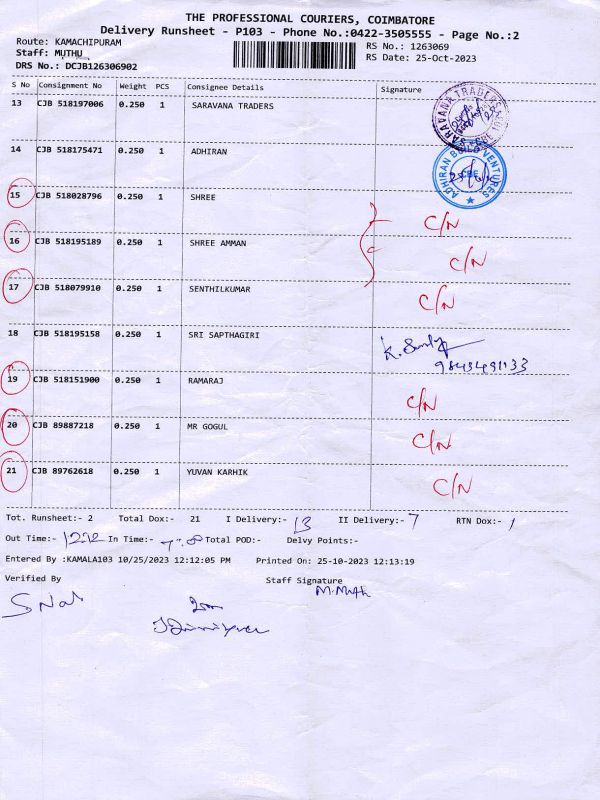 THE PROFESSIONAL COURIERS, COIMBATORE
Delivery Runsheet - P103 - Phone No.:0422-3505555 - Page No.:2
Route: KAMACHIPURAM
RS No.: 1263069
Staff: MUTHU
RS Date: 25-Oct-2023
DRS No.: DCJB126306902
S No Consignment No Weight PCS Consignee Details Signature
13 CJB 518197006 0.250 1 SARAVANA TRADERS
SARAVANA TRADERS
14 CJB 518175471 0.250 1 ADHIRAN
ADHIRAN BUILD VENTURES CBE
15 CJB 518028796 0.250 1 SHREE C/N
16 CJB 518195189 0.250 1 SHREE AMMAN C/N
17 CJB 518079910 0.250 1 SENTHILKUMAR C/N
18 CJB 518195158 0.250 1 SRI SAPTHAGIRI
19 CJB 518151900 0.250 1 RAMARAJ C/N
20 CJB 89887218 0.250 1 MR GOGUL C/N
21 CJB 89762618 0.250 1 YUVAN KARHIK C/N
Tot. Runsheet:- 2 Total Dox:- 21 I Delivery:- 13 II Delivery:- 7 RTN Dox:- 1
Out Time:- In Time:- Total POD:- Delvy Points:-
Entered By :KAMALA103 10/25/2023 12:12:05 PM Printed On: 25-10-2023 12:13:19
Verified By Staff Signature
M. Muth